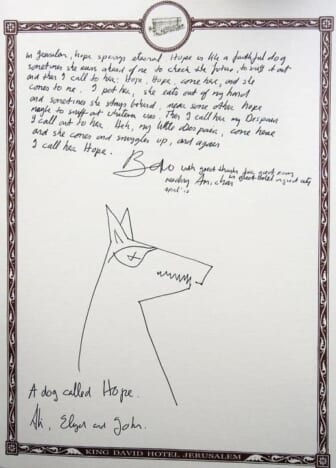 in Jerusalem, hope springs eternal. Hope is like a faithful dog
sometimes she runs ahead of me to check the future, to sniff it out
and then I call to her: Hope, Hope, come here, and she
comes to me. I pet her, she eats out of my hand
and sometimes she stays behind, near some other hope
maybe to sniff out whatever was. Then I call her my Despair
I call out to her. Heh, my little Despair, come here
and she comes and snuggles up, and again
I call her Hope.
Bono
with great thanks for
reading Amichai in great hotel a great city
april
A dog called Hope.
Ali, and John.
KING DAVID HOTEL JERUSALEM